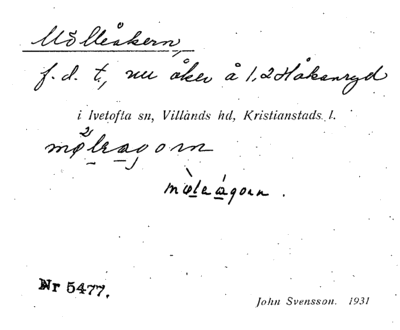 Mölleåkern,
f. d. t, nu åker å 1,2 Håkanryd
i Ivetofta sn, Villands hd, Kristianstads l.
Nr 5477.
John Svensson. 1931